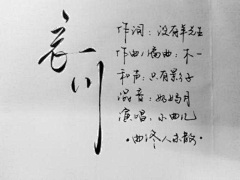 川
作词：没有
作曲/编曲：不一
和声：只有影子
混音：
演唱：小曲儿
·曲终人未散·